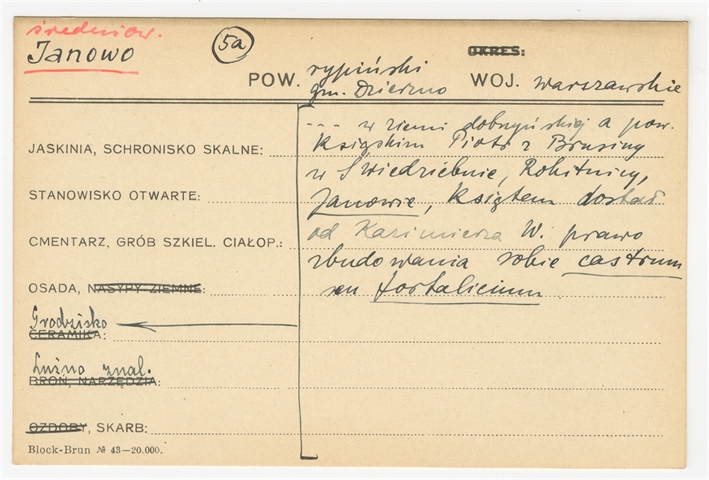 średniow.
Janowo
5a
OKRES:
POW. rypiński
gm. Dzierzno
WOJ. warszawskie
--- w ziemi dobrzyńskiej a pow.
JASKINIA, SCHRONISKO SKALNE: książskim Piotr z Brusiny
w Świedziebnie, Rokitnicy,
STANOWISKO OTWARTE: Janowie, księtem dostał
CMENTARZ, GRÓB SZKIEL. CIAŁOP.: od Kazimierza W. prawo
zbudowania sobie castrum
OSADA, NASYPY ZIEMNE: seu fortalicium.
Grodzisko
CERAMIKA:
Luźno znal.
BROŃ, NARZĘDZIA:
OZDOBY, SKARB:
Block-Brun № 43—20.000.